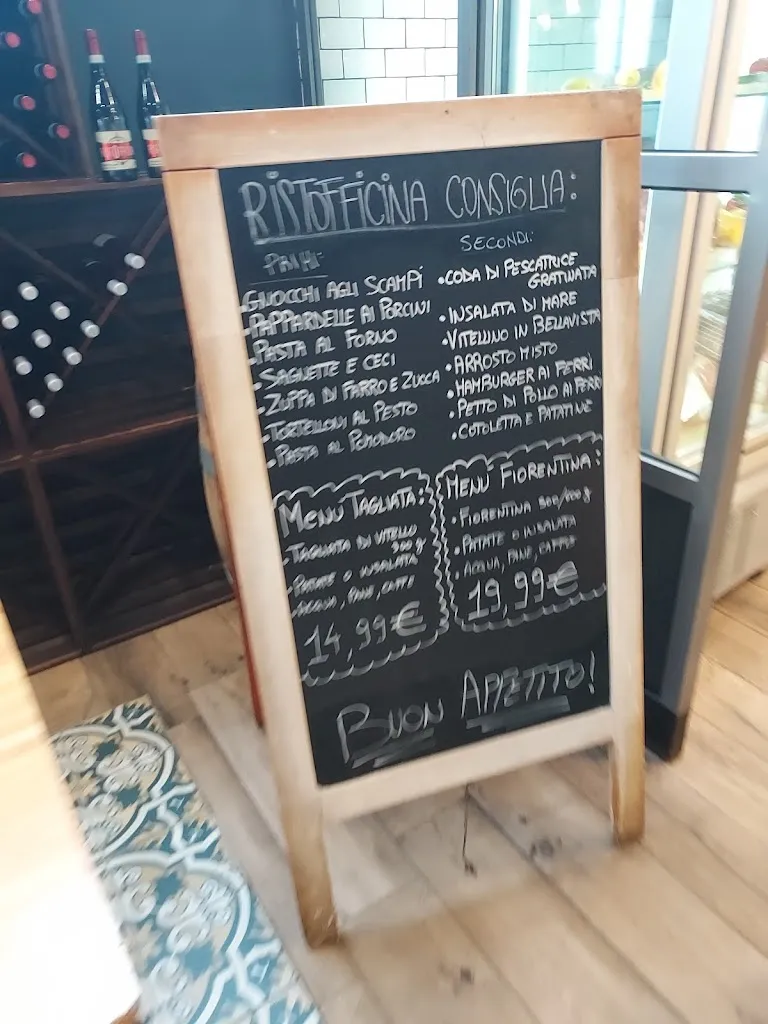 RISTOFFICINA CONSIGLIA:
PRIMI:
GNOCCHI AGLI SCAMPI
PAPPARDELLE AI PORCINI
PASTA AL FORNO
SAGNETTE E CECI
ZUPPA DI FARRO E ZUCCA
TORTELLONI AL PESTO
PASTA AL POMODORO
SECONDI:
CODA DI PESCATRICE
GRATINATA
INSALATA DI MARE
VITELLINO IN BELLAVISTA
ARROSTO MISTO
HAMBURGER AI FERRI
PETTO DI POLLO AI FERRI
COTOLETTA E PATATINE
MENÙ TAGLIATA:
TAGLIATA DI VITELLO
300 g
PATATE O INSALATA
ACQUA, PANE, CAFFÈ
14,99€
MENÙ FIORENTINA:
FIORENTINA
PATATE O INSALATA
ACQUA, PANE, CAFFÈ
19,99€
BUON APPETITO!